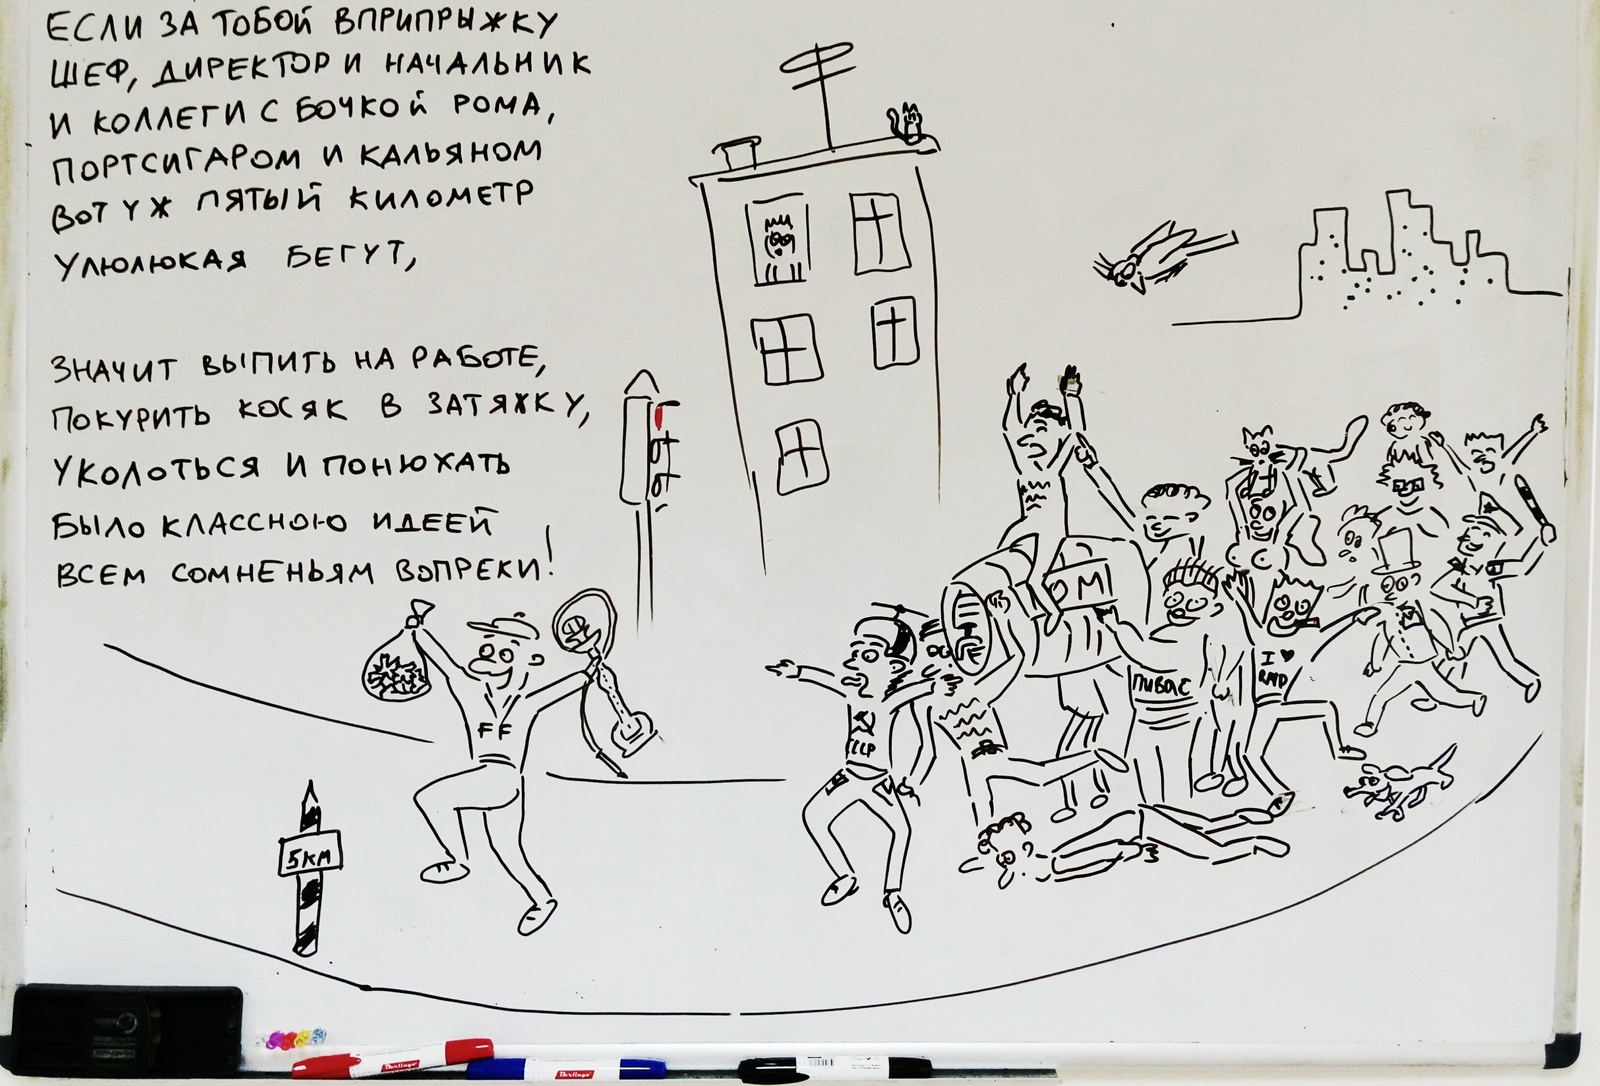 ЕСЛИ ЗА ТОБОЙ ВПРИПРЫЖКУ
ШЕФ, ДИРЕКТОР И НАЧАЛЬНИК
И КОЛЛЕГИ С БОЧКОЙ РОМА,
ПОРТСИГАРОМ И КАЛЬЯНОМ
ВОТ УЖ ПЯТЫЙ КИЛОМЕТР
УЛЮЛЮКАЯ БЕГУТ,
ЗНАЧИТ ВЫПИТЬ НА РАБОТЕ,
ПОКУРИТЬ КОСЯК В ЗАТЯЖКУ,
УКОЛОТЬСЯ И ПОНЮХАТЬ
БЫЛО КЛАССНОЮ ИДЕЕЙ
ВСЕМ СОМНЕНЬЯМ ВОПРЕКИ!
FF
5КМ
ССР
ОМ
ПИВАС
I ♥
Berlingo
Berlingo